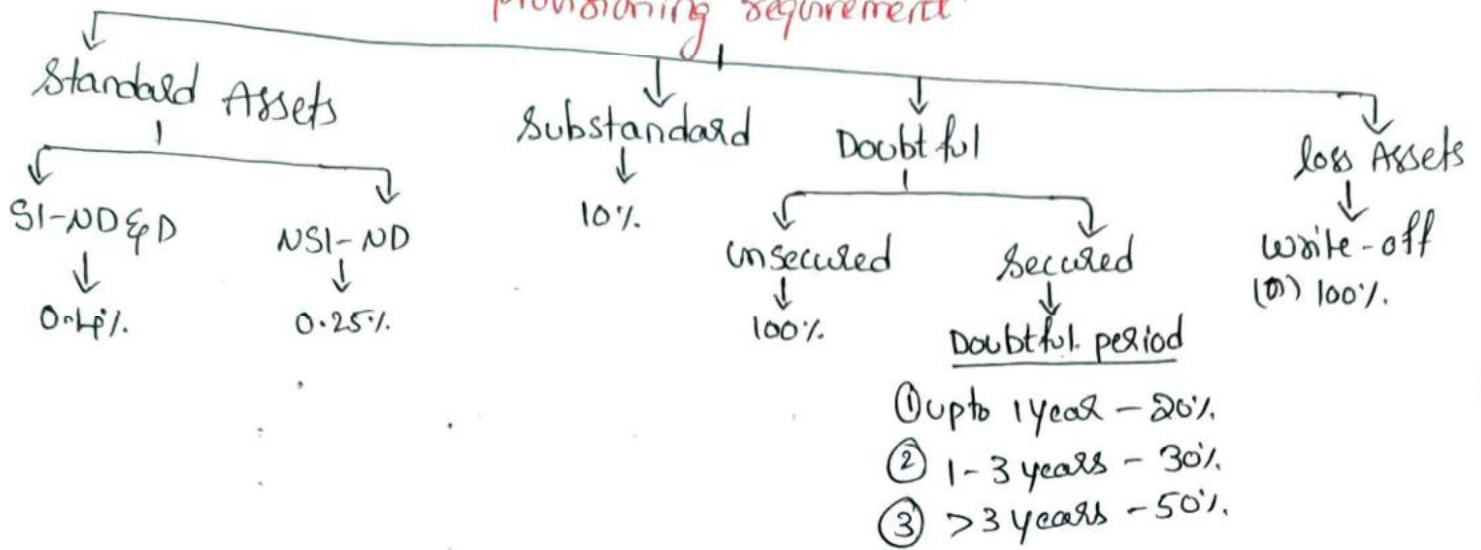 provisioning requirement
Standard Assets
SI-ND & D
0.4%
NSI-ND
0.25%
Substandard
10%
Doubtful
unsecured
100%
Secured
Doubtful period
① upto 1 year - 20%
② 1-3 years - 30%
③ >3 years - 50%
loss Assets
write-off
(or) 100%